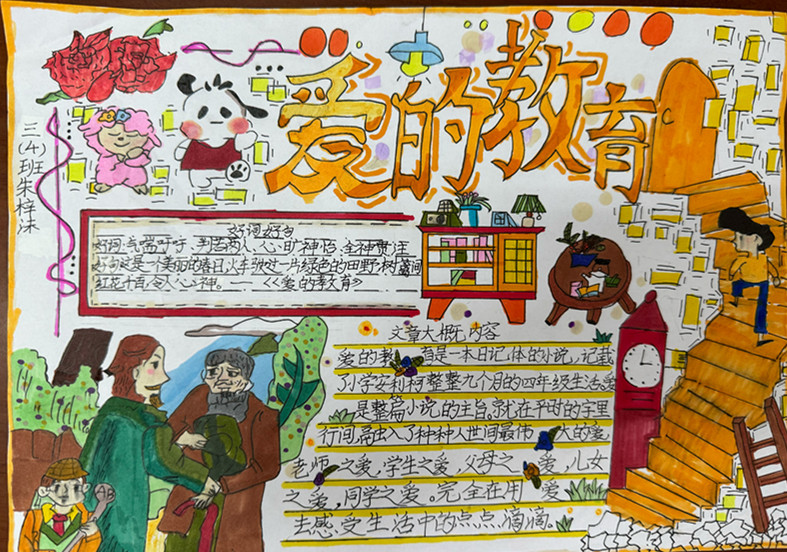 爱的教育
三(4)班朱梓沫
好词好句
好词:气喘吁吁、判若两人、心旷神怡、全神贯注
好句:这是一个美丽的春日,火车驶过一片绿色的田野,树篱间
红花千百,令人心神。——《爱的教育》
文章大概内容
爱的教育是一本日记体的小说,记载
了小学安利柯整整九个月的四年级生活,爱
是整篇小说的主旨,就在平时的字里
行间,融入了种种人世间最伟大的爱,
老师之爱,学生之爱,父母之爱,儿女
之爱,同学之爱。完全在用爱
去感受生活中的点点滴滴。